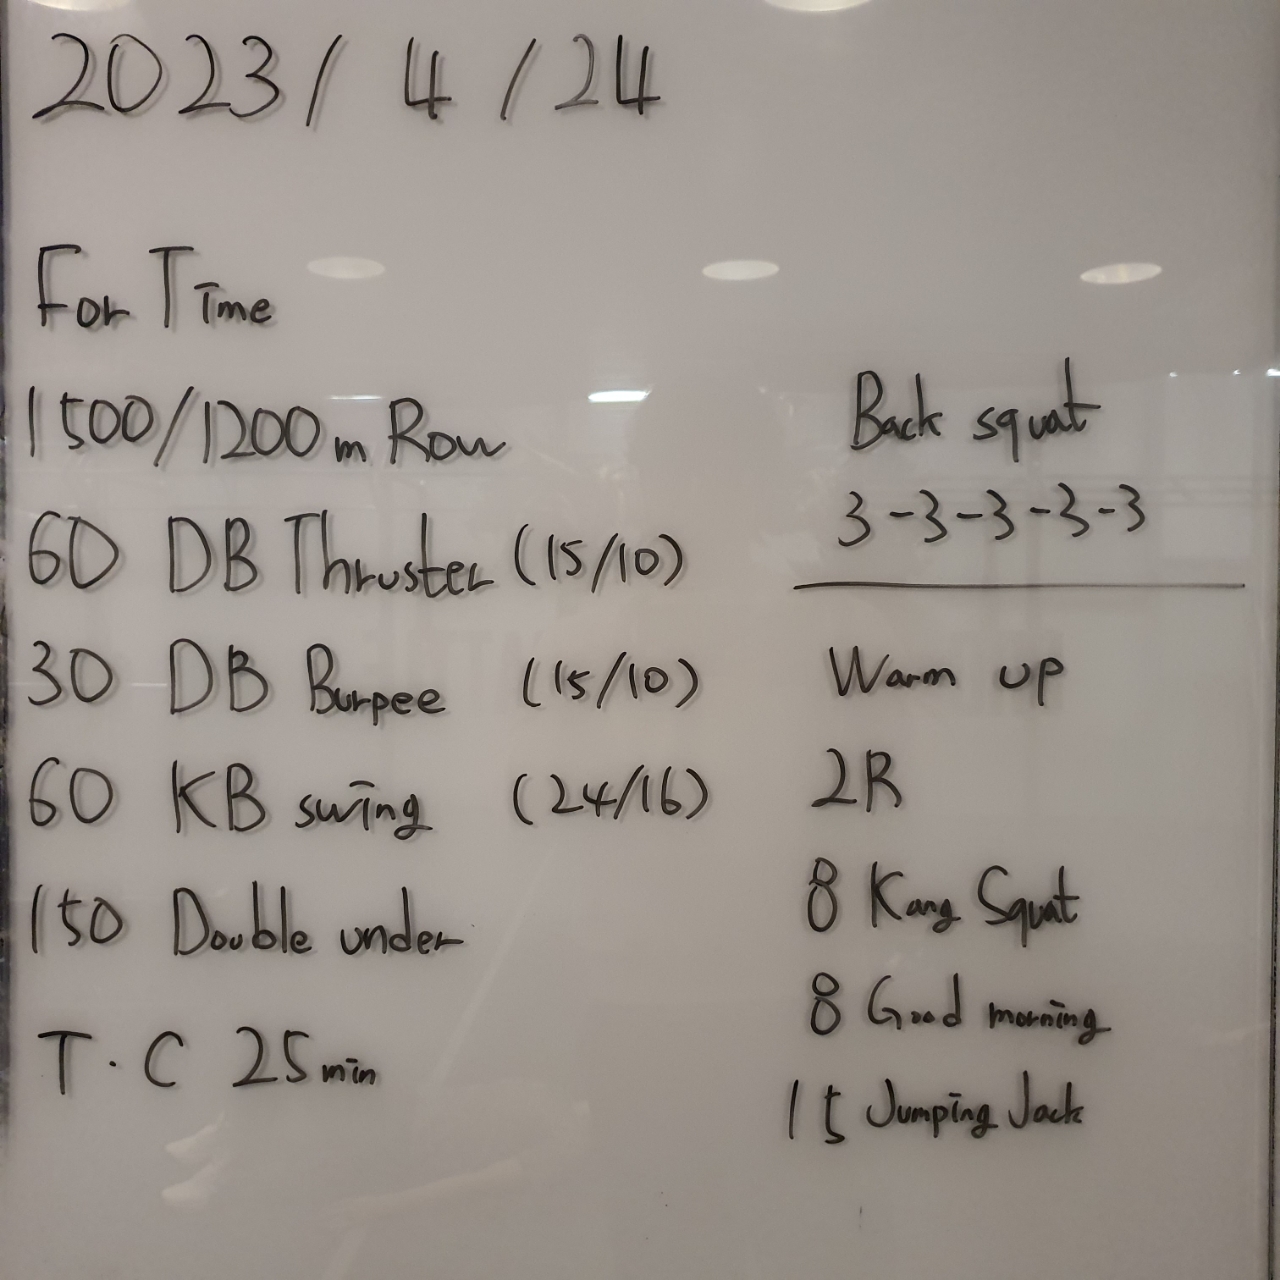 2023/4/24
For Time
1500/1200m Row
60 DB Thruster (15/10)
30 DB Burpee (15/10)
60 KB swing (24/16)
150 Double under
T.C 25min
Back squat
3-3-3-3-3
Warm up
2R
8 Kang Squat
8 Good morning
15 Jumping Jack